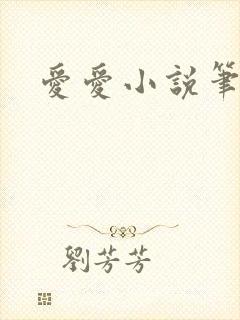 愛愛小説筆
劉芳芳